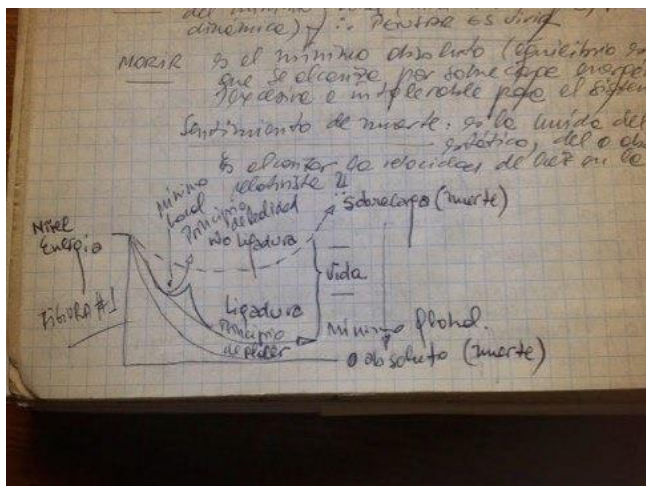 del mínimo
dinámica) y ∴ PENSAR ES vivir
MORIR es el mínimo absoluto (equilibrio es
que se alcanza por sobrecarga energé
excesiva e intolerable para el sistem
Sentimiento de muerte: es la huida del
estático, del 0 abs
Es alcanzar la velocidad de luz en la
relativista
Nivel
Energía
Mínimo
local
Principio
de realidad
No ligadura
Sobrecarga (muerte)
Vida
FIGURA #1
Ligadura
Principio
de placer
Mínimo global.
0 absoluto (muerte)